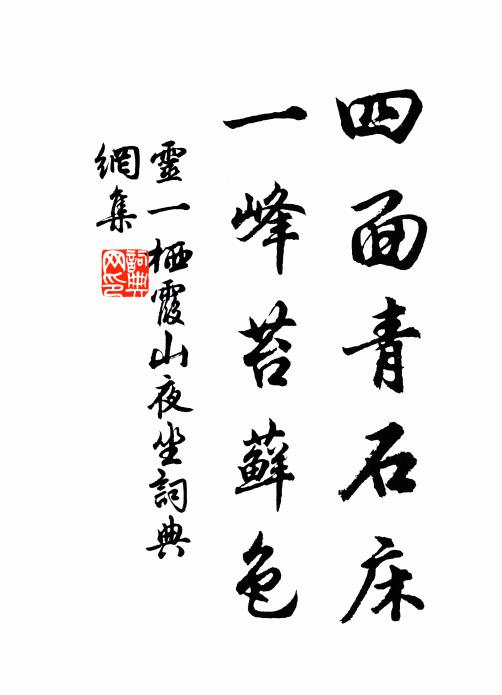 四面青石床
一峰苔蘚色
靈一栖霞山夜坐詞典
網集
詞典
网印